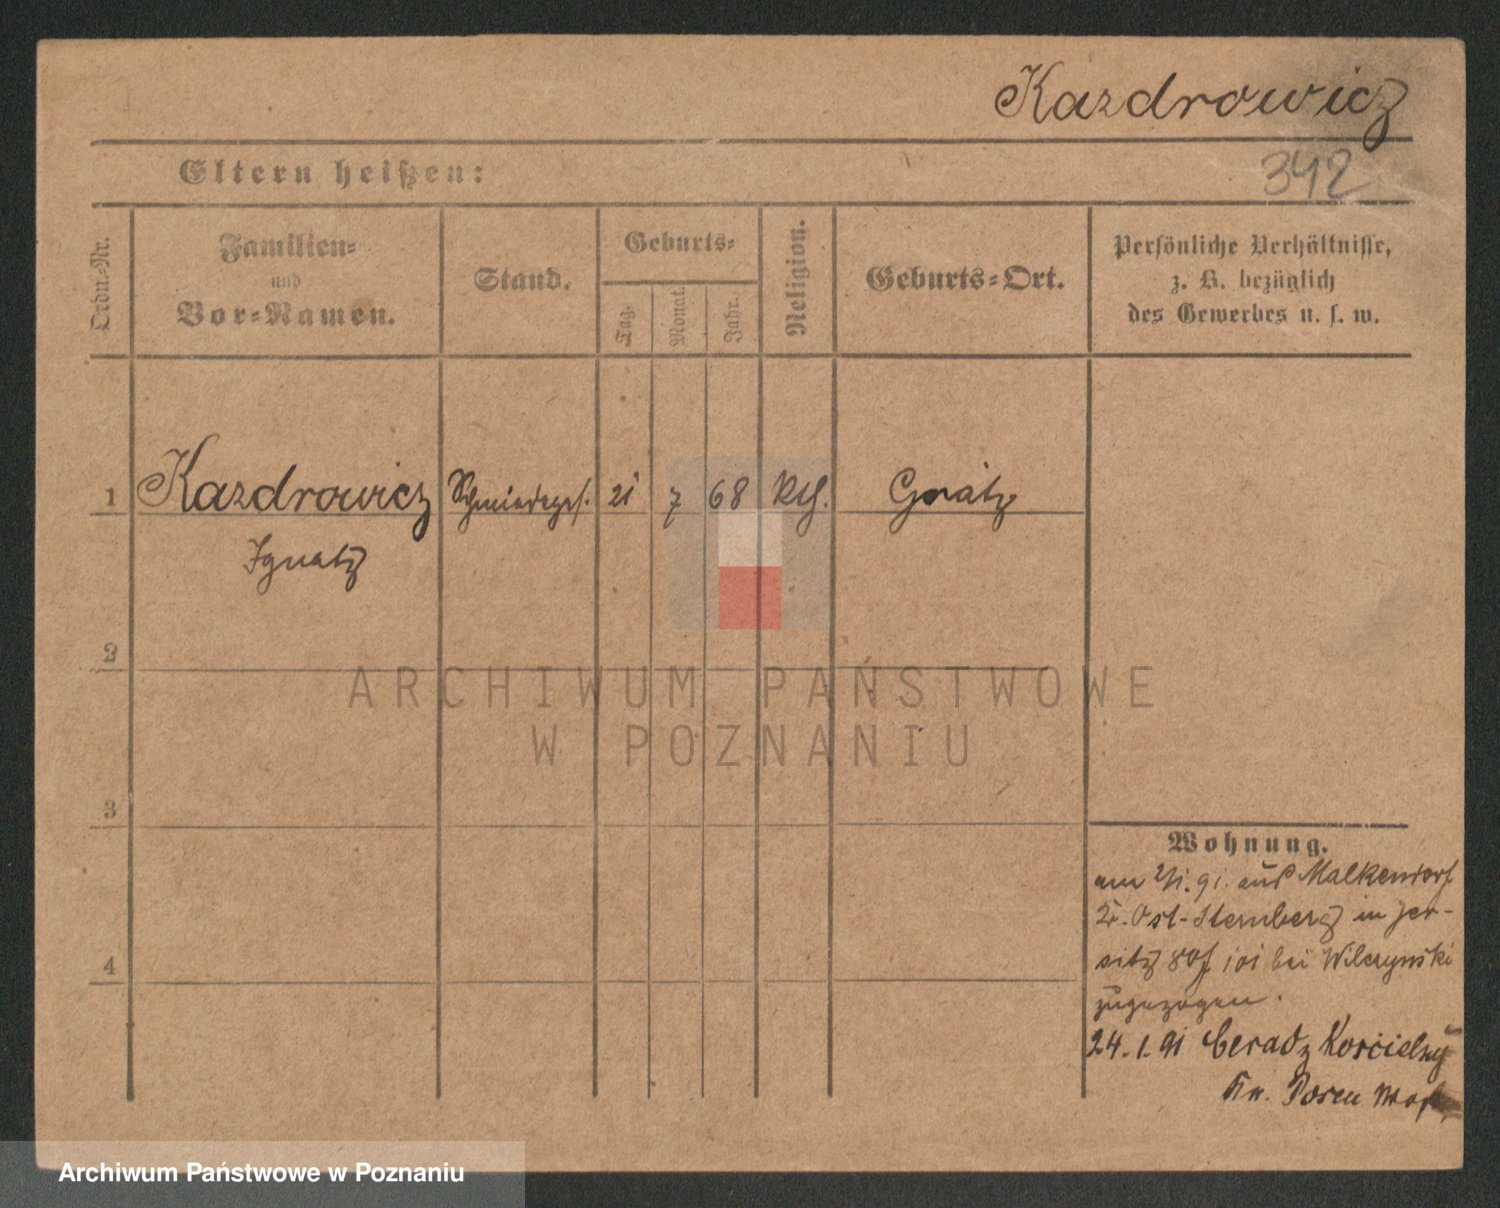 Kazdrowicz
Eltern heißen:
342
Ordn.-Nr.
Familien-
und
Vor-Namen.
Stand.
Geburts-
Tag.
Monat.
Jahr.
Religion.
Geburts-Ort.
Persönliche Verhältnisse,
z. B. bezüglich
des Gewerbes u. s. w.
1 Kazdrowicz Schmiedeges. 21 7 68 Kth. Grätz
Ignatz
2
ARCHIWUM PAŃSTWOWE
W POZNANIU
3
4
Wohnung.
am 2/1. 91. aus Malkendorf
Kr. Ost-Sternberg in Jer-
sitz 101 bei Wilczynski
zugezogen.
24.1.91 Ceradz Kościelny
Kr. Posen West
Archiwum Państwowe w Poznaniu